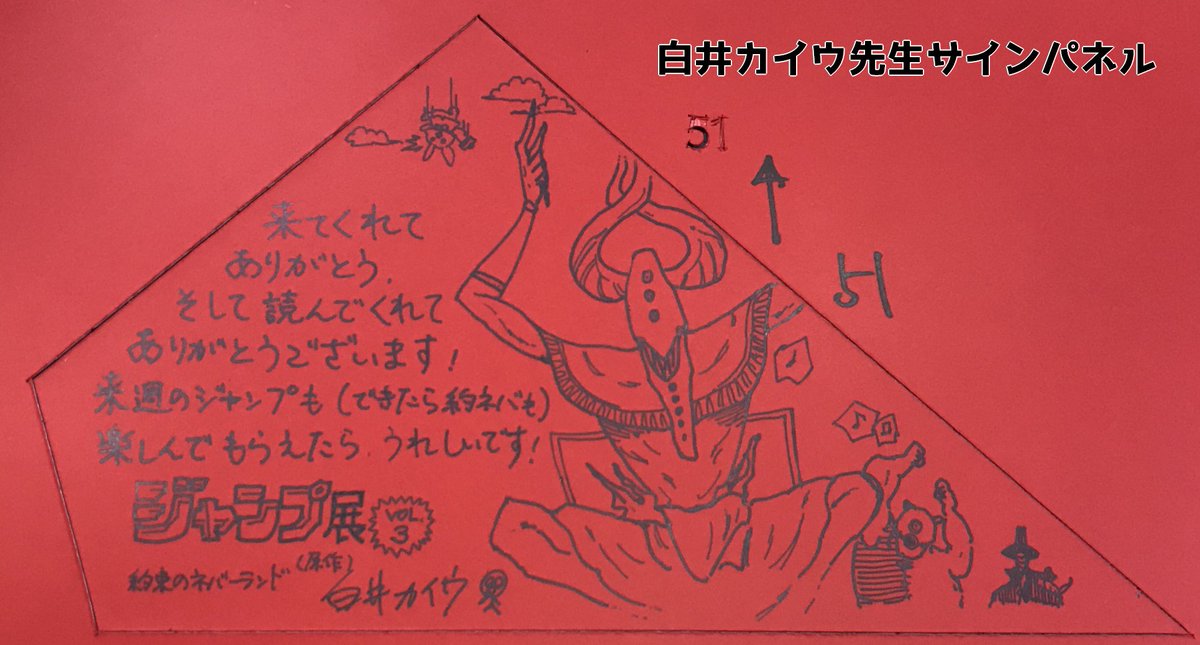 白井カイウ先生サインパネル
51
51
来てくれて
ありがとう、
そして読んでくれて
ありがとうございます!
来週のジャンプも(できたら約ネバも)
楽しんでもらえたら、うれしいです!
ジャンプ展 VOL.3
約束のネバーランド(原作)
白井カイウ